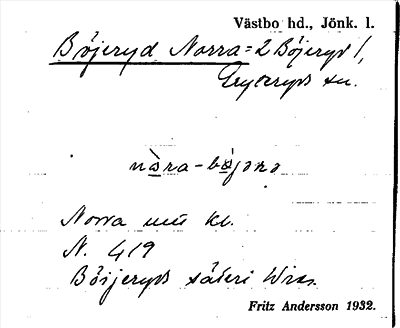 Västbo hd., Jönk. l.
Böjeryd Norra = 2 Böjeryd /,
Gryteryds sn.
nò̱ra-bö̱̀jərə
Norra
N. 419
Böijeryd säteri
Fritz Andersson 1932.